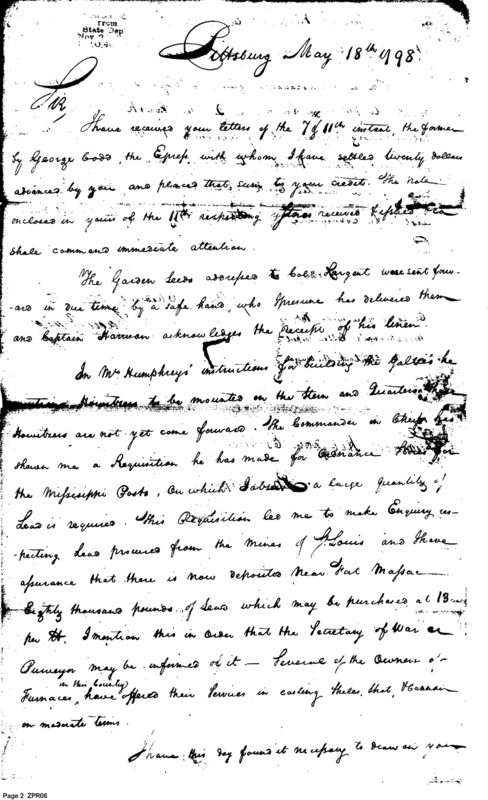 from
State Dep
Pittsburg May 18th 1798
Sir,
I have received your letters of the 7th & 11th instant, the former
by George Codd, the Express, with whom I have settled twenty dollars
advanced by you and placed that sum to your credit. The note
enclosed in yours of the 11th respecting Stores received
shall command immediate attention.
The Garden Seeds addressed to Colo. Sargent were sent forw-
-ard in due time by a safe hand, who I presume has delivered them
and Captain Harrison acknowledges the receipt of his linen
In Mr. Humphreys' instructions for building the Gallies he
mentions Howitzers to be mounted on the Stern and Quarters
Howitzers are not yet come forward. The Commander in Chief has
shewn me a Requisition he has made for Ordnance Stores for
the Missisippi Posts, On which I observe a large quantity of
Lead is required. This Requisition led me to make Enquiry res-
-pecting Lead procured from the Mines of St. Louis and I have
assurance that there is now deposited Near Fort Massac
Eighty thousand pounds of Lead which may be purchased at 13
per lb. I mention this in Order that the Secretary of War or
Purveyor may be informed of it — Several of the Owners of
in this Country
Furnaces, have offered their Services in casting Shells, Shot, & Cannon
on moderate terms.
I have this day found it necessary to draw on you
Page 2 ZPR06